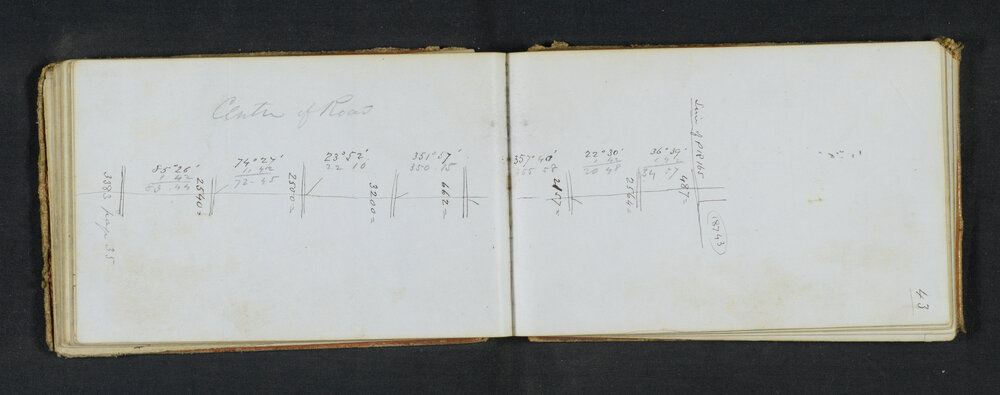 Centre of Road
3383 page 35
85° 26'
1 42
83 44
2540=
74° 27'
1. 42
72 - 45
2550=
23° 52'
22 10
3200=
351° 57'
350 15
662=
357° 40'
355 58
2157=
22° 30'
1 42
20 48
2564=
36° 39'
1 42
34 57
487=
of PR 165
18743
43